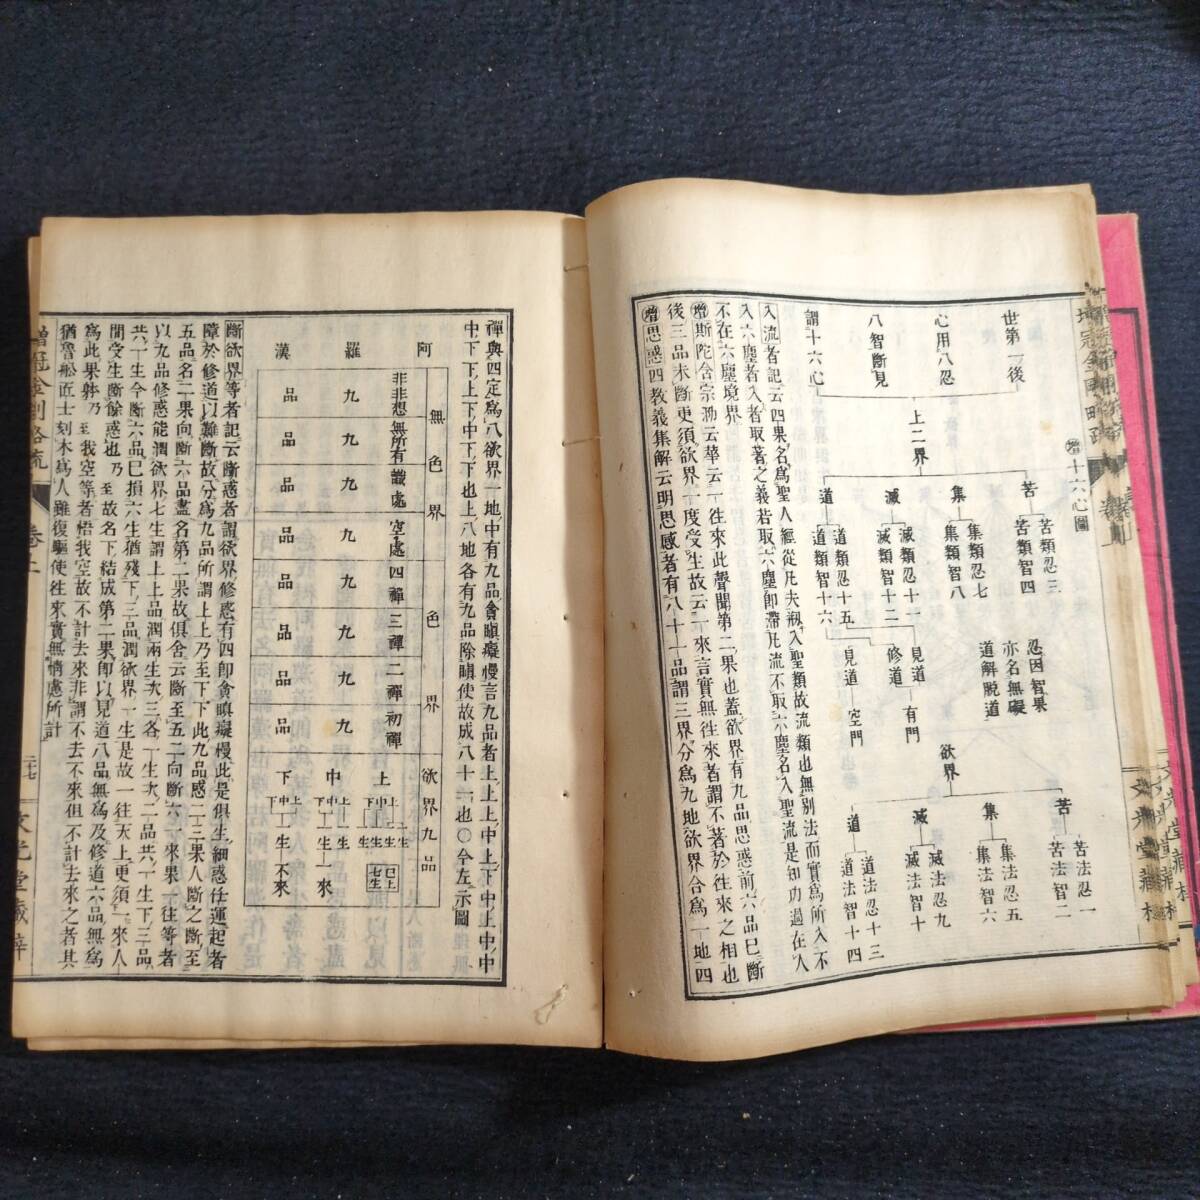 增十六心圖
世第一後
心用八忍
八智斷見
謂十六心
上二界
苦
苦類忍三
苦類智四
集
集類忍七
集類智八
滅
滅類忍十一
滅類智十二
道
道類忍十五
道類智十六
忍因智果
亦名無礙
道解脫道
見道
修道
有門
見道
空門
欲界
苦
苦法忍一
苦法智二
集
集法忍五
集法智六
滅
滅法忍九
滅法智十
道
道法忍十三
道法智十四
入流者記云四果名爲聖人經從凡夫剏入聖類故流類也無別法而實爲所入不
入六塵者入者取著之義若取六塵即滯凡流不取六塵名入聖流是知功過在人
不在六塵境界
增斯陀含宗泐云華云一徃來此聲聞第二果也蓋欲界有九品思惑前六品已斷
後三品未斷更須欲界一度受生故云一來言實無徃來者謂不著於徃來之相也
增思惑四教義集解云明思惑者有八十一品謂三界分爲九地欲界合爲一地四
禪與四定爲八欲界一地中有九品貪瞋癡慢言九品者上上上中上下中上中中
中下下上下中下下也上八地各有九品除瞋使故成八十一也○今左示圖
阿羅漢
無色界
色界
欲界九品
非非想
無所有
識處
空處
四禪
三禪
二禪
初禪
九九九九九九九九
品品品品品品品品
上
中
下
已上七生
一生
一來
不來
斷欲界等者記云斷惑者謂欲界修惑有四即貪瞋癡慢此是俱生細惑任運起者
障於修道以難斷故分爲九品所謂上上乃至下下此九品惑二三果八斷之斷至
五品名二果向斷六品盡名第二果故俱舍云斷至五二向斷六一來果一徃等者
以九品修惑能潤欲界七生謂上上品潤兩生次三各一生次二品共一生下三品
共一生今斷六品已損六生猶殘下三品潤欲界一生是故一往天上更須一來人
間受生斷餘惑也乃至故名下結成第二果即以見道八品無爲及修道六品無爲
爲此果躰乃至我空等者悟我空故不計去來非謂不去不來但不計去來之者其
猶魯般匠士刻木爲人雖復驅使徃來實無情慮所計
卷上
二十七
文光堂藏梓